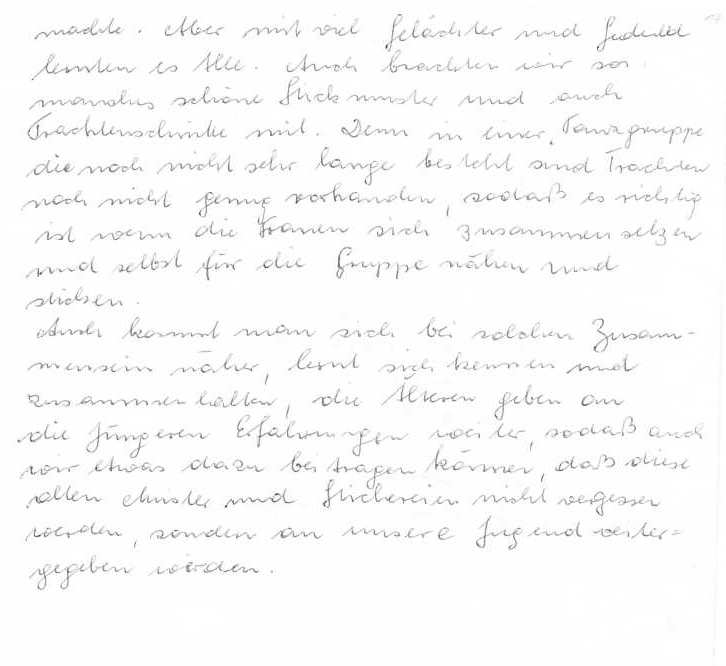 machte. Aber mit viel Gelächter und Geduld
lernten es Alle. Auch brachten wir so
manches schöne Stickmuster und auch
Trachtenschnitte mit. Denn in einer Tanzgruppe
die noch nicht sehr lange besteht sind Trachten
noch nicht genug vorhanden, sodaß es richtig
ist wenn die Frauen sich zusammen setzen
und selbst für die Gruppe nähen und
sticken.
Auch kommt man sich bei solchen Zusam-
mensein näher, lernt sich kennen und
zusammen halten, die Älteren geben an
die Jüngeren Erfahrungen weiter, sodaß auch
wir etwas dazu bei tragen können, daß diese
alten Muster und Stickereien nicht vergessen
werden, sondern an unsere Jugend weiter-
gegeben werden.